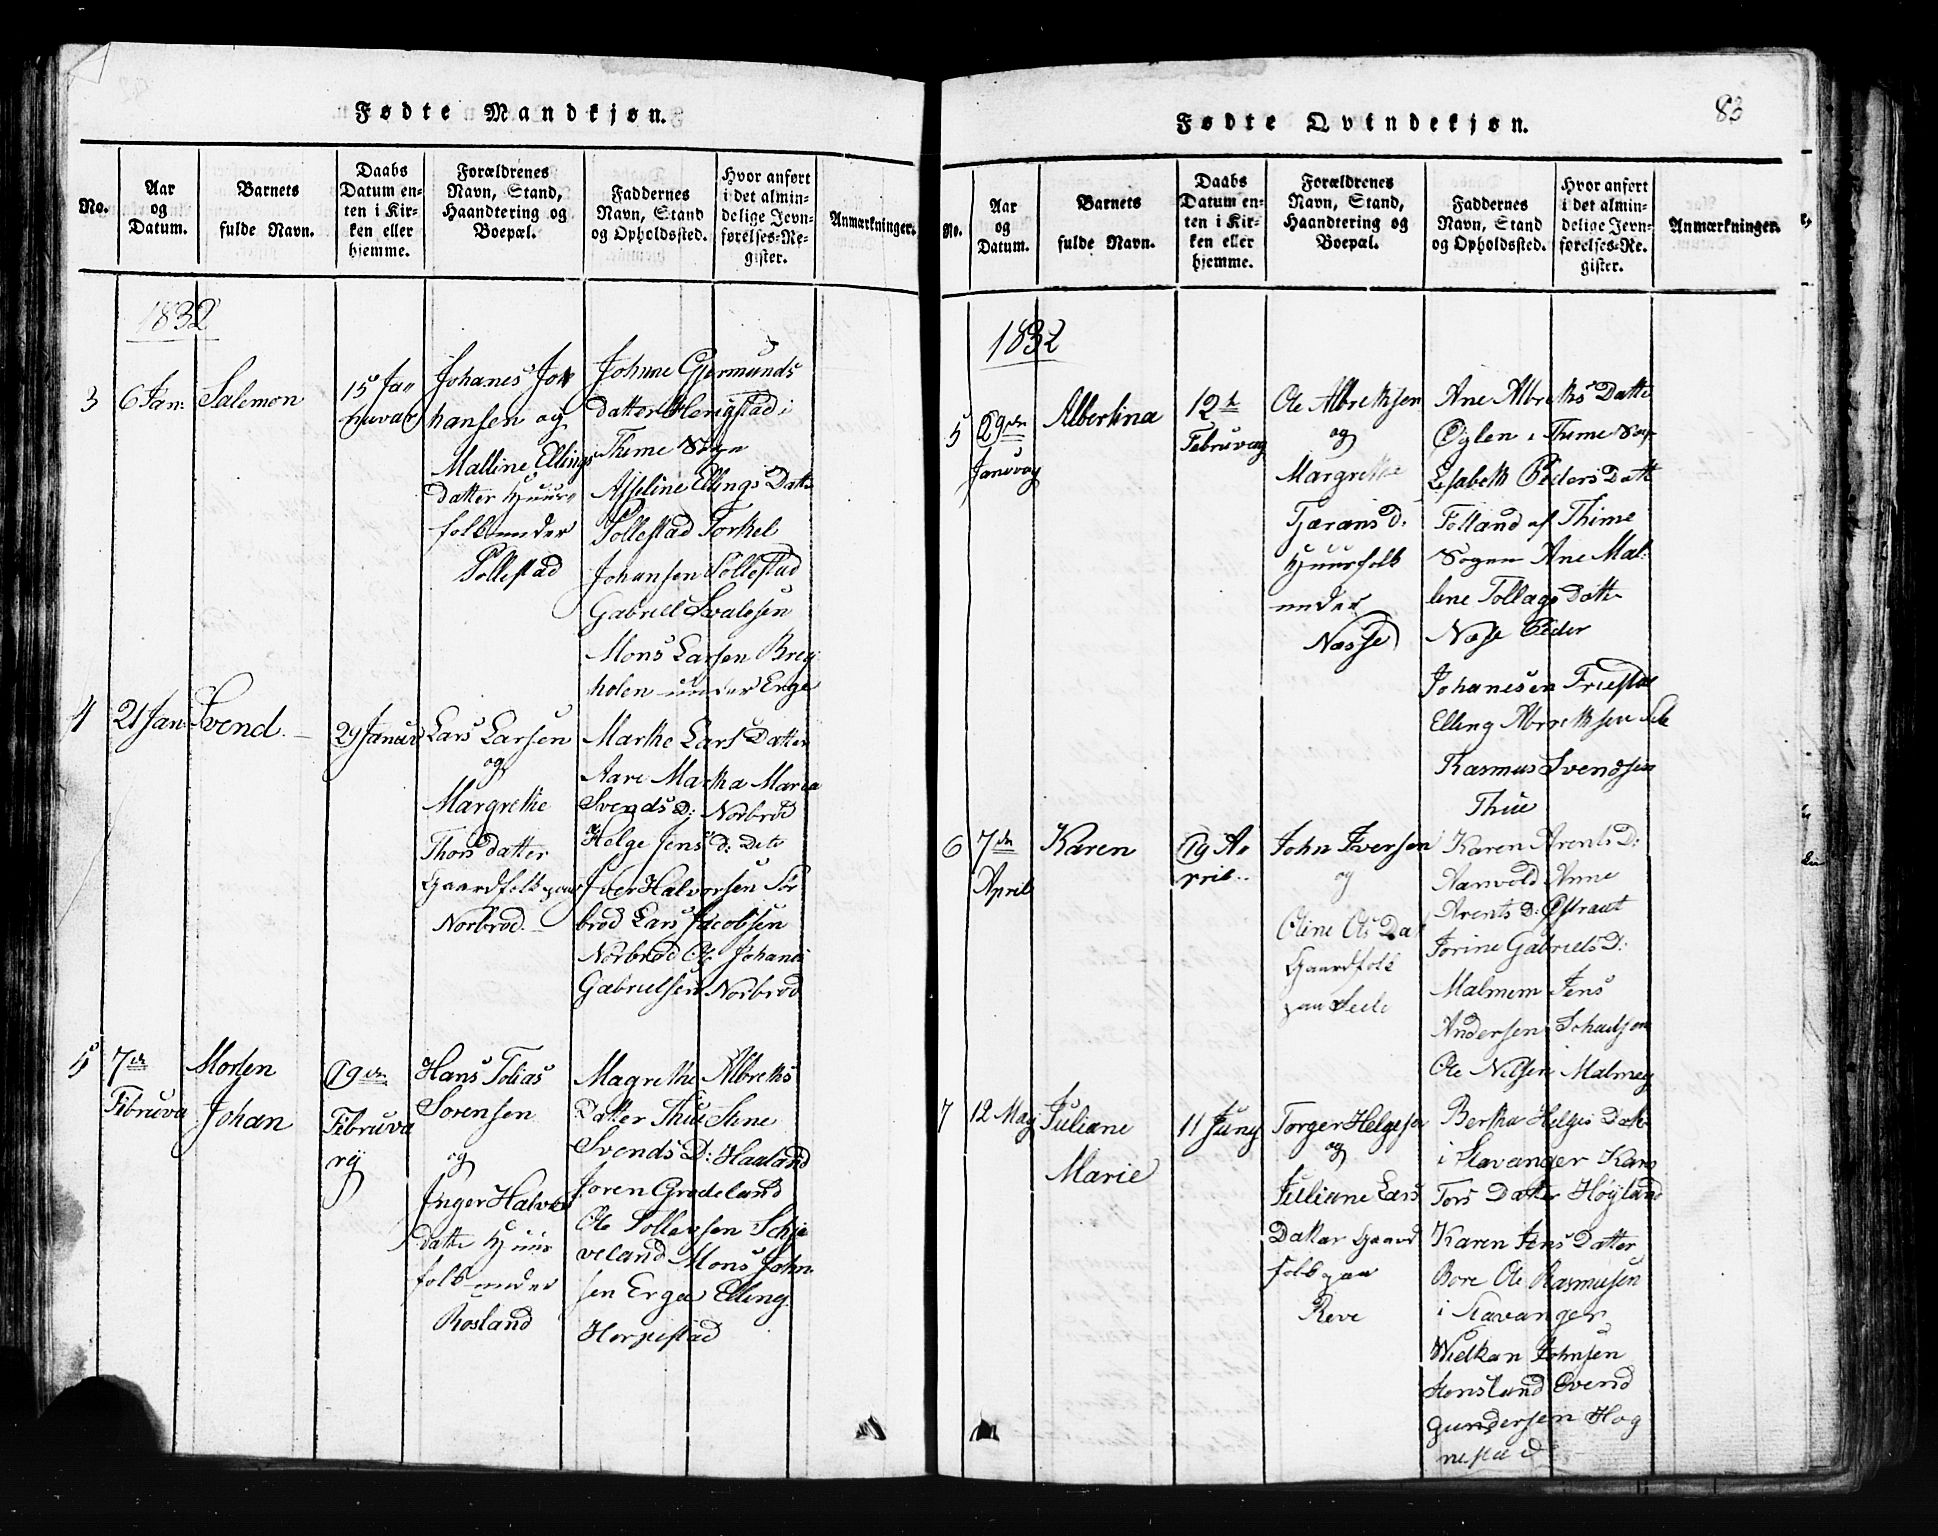 Fødte Mandkjøn.
No.
Aar
og
Datum.
Barnets
fulde Navn.
Daabs
Datum en-
ten i Kir-
ken eller
hjemme.
Forældrenes
Navn, Stand,
Haandtering og
Boepæl.
Faddernes
Navn, Stand
og Opholdssted.
Hvor anført
i det almin-
delige Jevn-
førelses-Re-
gister.
Anmærkninger.
1832
3
6 Jan:
Salemon
15 Ja
nuvar
Johanes Jo
hansen og
Malline Ellings
datter Huus
folk under
Pollestad
Johnne Gjermunds
datter
i
Thime Sogn
Asseline Ellings Datt
Pollestad Torkel
Johansen Pollestad
Gabriel Svalesen
Mons Larsen Brey
holen under Erge
4
21 Jan:
Svend.
29 Januar
Lars Larsen
og
Margrethe
Thors datter
Gaardfolk paa
Norbrød
Marthe Lars Datter
Aare Martha Maria
Svends D: Norbrød
Helge Jens D: Dito
Iver Halvorsen Sør
brød Lars Jacobsen
Norbrød Ole Johans
Gabrielsen Norbrød
5
7de
Februva
Morten
Johan
19de
Februva
rij
Hans Tobias
Sørensen
og
Inger Halvors
datte Huus
folk under
Rosland
Magrethe Albreths
Datter Thue Stine
Svends D: Haaland
Joren Grødeland
Ole Tollevsen Schje
veland Mons John
sen Erga Elling
Herpestad
Fødte Qvindekjøn.
83
No.
Aar
og
Datum.
Barnets
fulde Navn.
Daabs
Datum en-
ten i Kir-
ken eller
hjemme.
Forældrenes
Navn, Stand,
Haandtering og
Boepæl.
Faddernes
Navn, Stand
og Opholdssted.
Hvor anført
i det almin-
delige Jevn-
førelses-Re-
gister.
Anmærkninger.
1832
5
29de
Januvay
Albertina
12te
Februvay
Ole Albrethsen
og
Margrethe
Tjærans D:
Huusfolk
under
Næsse
Ane Albreths Datte
Øglen i Thime Sog
Lisabeth Peders Datt
Folland af Thime
Sogen Ane Mal
lene Tollags Datte
Nøse Peder
Johanesen Friestad
Elling Abrethsen Sele
Rasmus Svendsen
Thue
6
7de
April
Karen
19 A
pril.
John Iversen
og
Oline Ols Dat
Gaardfolk
paa Seele
Karen Arents D:
Aanvold Anne
Arents D: Østraat
Jorine Gabriels D:
Malmem Jens
Andersen
Ole Nilsen Malmey
7
12 May
Juliane
Marie
11 Juny
Torger Helgesen
og
Juliane Lars
Datter Gaard
folk paa
Reve
Bertha Helges Datte
i Stavanger Kari
Tors Datter Høyland
Karen Jens Datter
Bore Ole Rasmusen
i Stavanger
Wiedkan Johnsen
Svend
Gundersen Hog
nestad